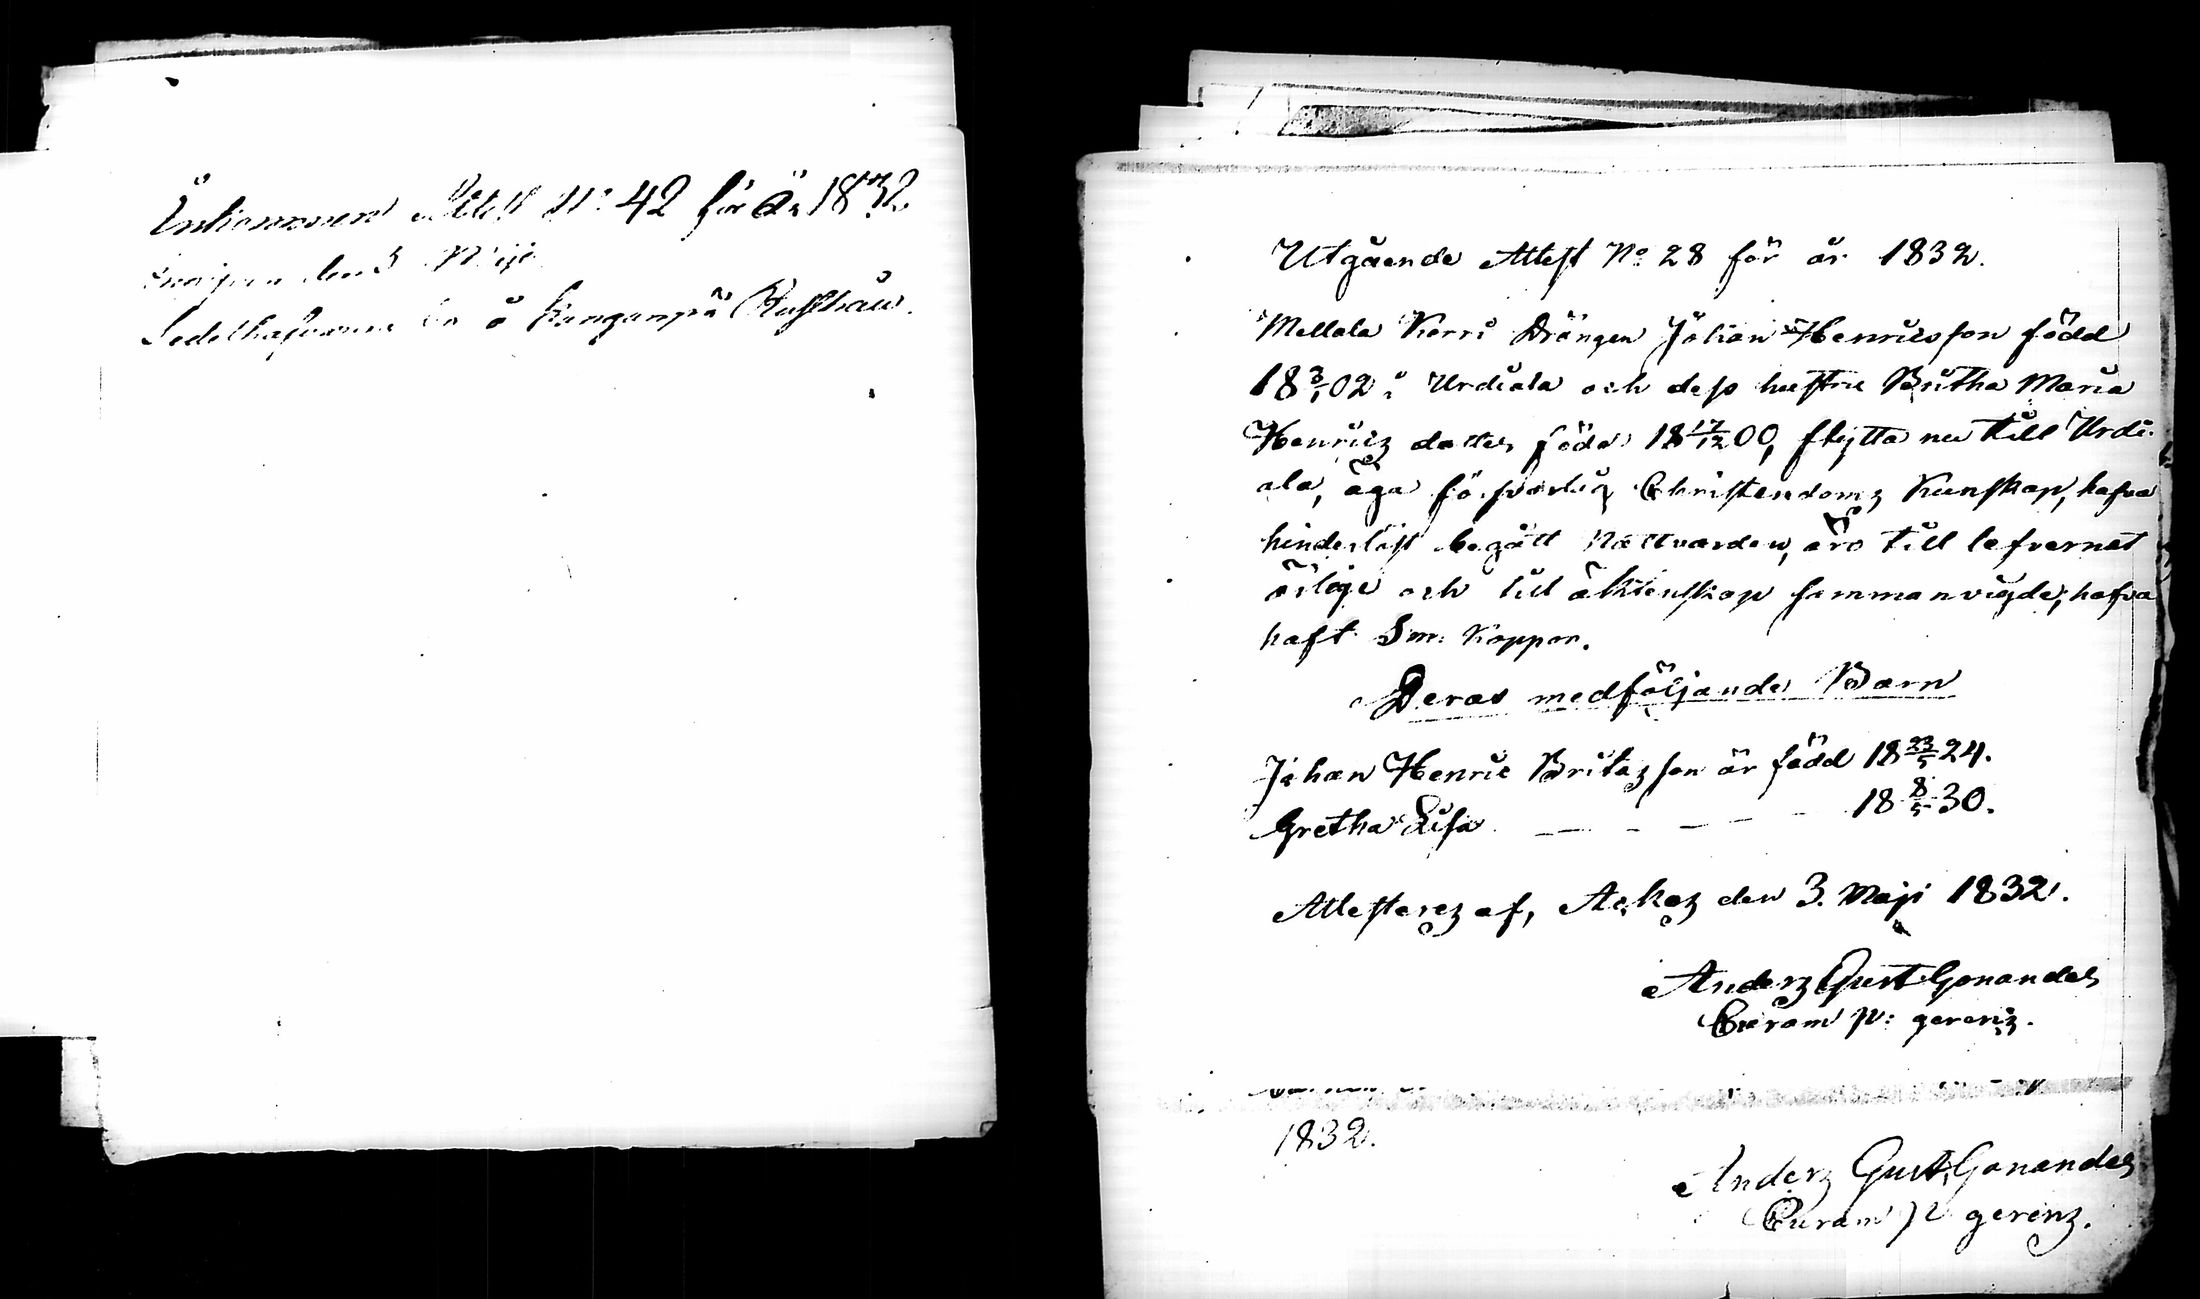 Inkommen Attest No: 42 för år 1832
den 3 Maji
Sedelhafvarne bo å Kanganpä Rusthåll.
Utgående Attest No 28 för år 1832.
Mellola Kerri Drängen Johan Henricsson född
18 3/1 02 i Urdiala och dess hustru Britha Maria
Henricz dotter född 18 17/12 00, flytta nu till Urdi-
ala, äga försvarlig Christendomz Kunskap, hafva
hinderlöst begått Nattvarden, äro till lefvernet
ärlige och till äktenskap sammanvigde; hafva
haft Sm: Koppor.
Deras medföljande Barn
Johan Henric Britaz son är född 18 23/5 24.
Gretha Lisa — - — — - 18 8/5 30.
Attesterez af, Ackaz den 3. Maji 1832.
Anderz Gust Gonandes
Curam p: gerenz.
1832.
Anderz Gust. Gonandes
Curam p gerenz.